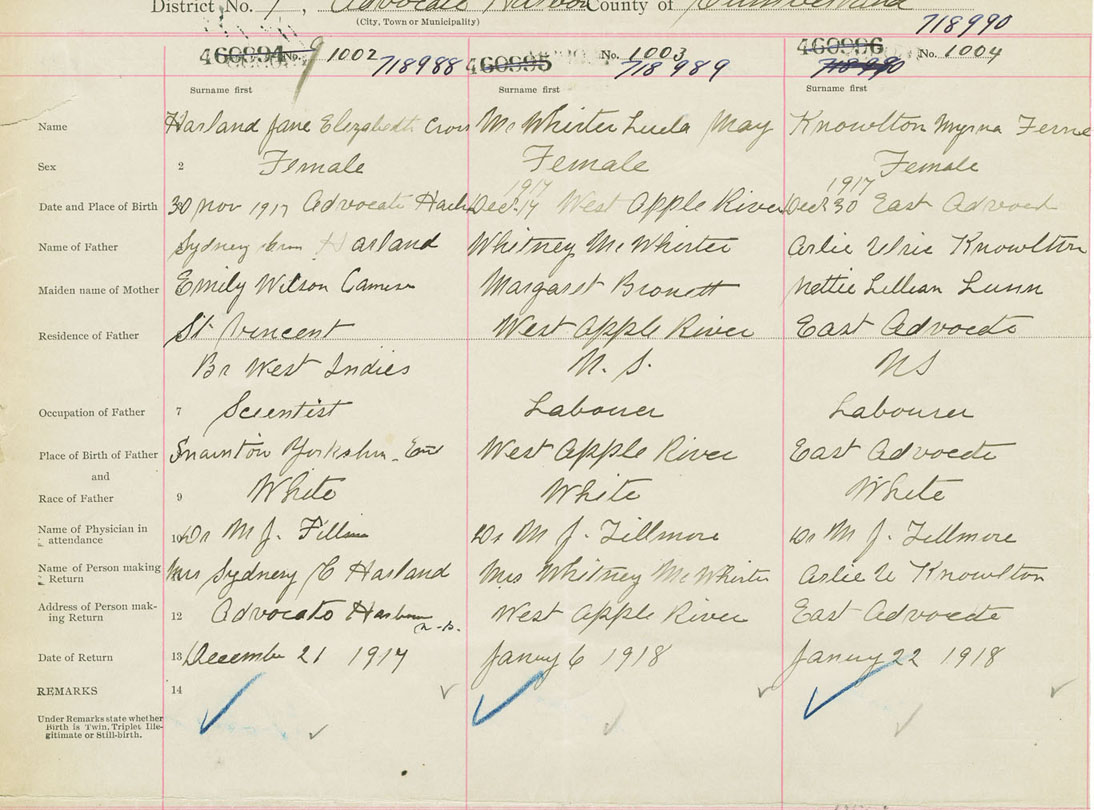 District No. 7, Advocate Harbor County of Cumberland
(City, Town or Municipality)
718990
460994 No. 1002 460995 No. 1003 460996 No. 1004
718988 718989 718990
Surname first Surname first Surname first
Name Harland Jane Elizabeth Crois Mc Whirter Luela May Knowlton Myrna Ferne
Sex 2 Female Female Female
1917 1917
Date and Place of Birth 30 Nov 1917 Advocate Harb Dec. 14 West Apple River Dec 30 East Advocate
Name of Father Sydney Harland Whitney McWhirter Arlie Uric Knowlton
Maiden name of Mother Emily Wilson Cameron Margaret Nettie Lillian Lunn
Residence of Father St Vincent West Apple River East Advocate
Br West Indies N. S. NS
Occupation of Father 7 Scientist Labourer Labourer
Place of Birth of Father Snainton Yorkshire Eng West Apple River East Advocate
and
Race of Father 9 White White White
Name of Physician in attendance 10 Dr M J. Fillmore Dr M J. Fillmore Dr M J. Fillmore
Name of Person making Return Mrs Sydney C Harland Mrs Whitney McWhirter Arlie U Knowlton
Address of Person making Return 12 Advocate Harbour N.S. West Apple River East Advocate
Date of Return 13 December 21 1917 January 6 1918 January 22 1918
REMARKS 14
Under Remarks state whether
Birth is Twin, Triplet Ille-
gitimate or Still-birth.